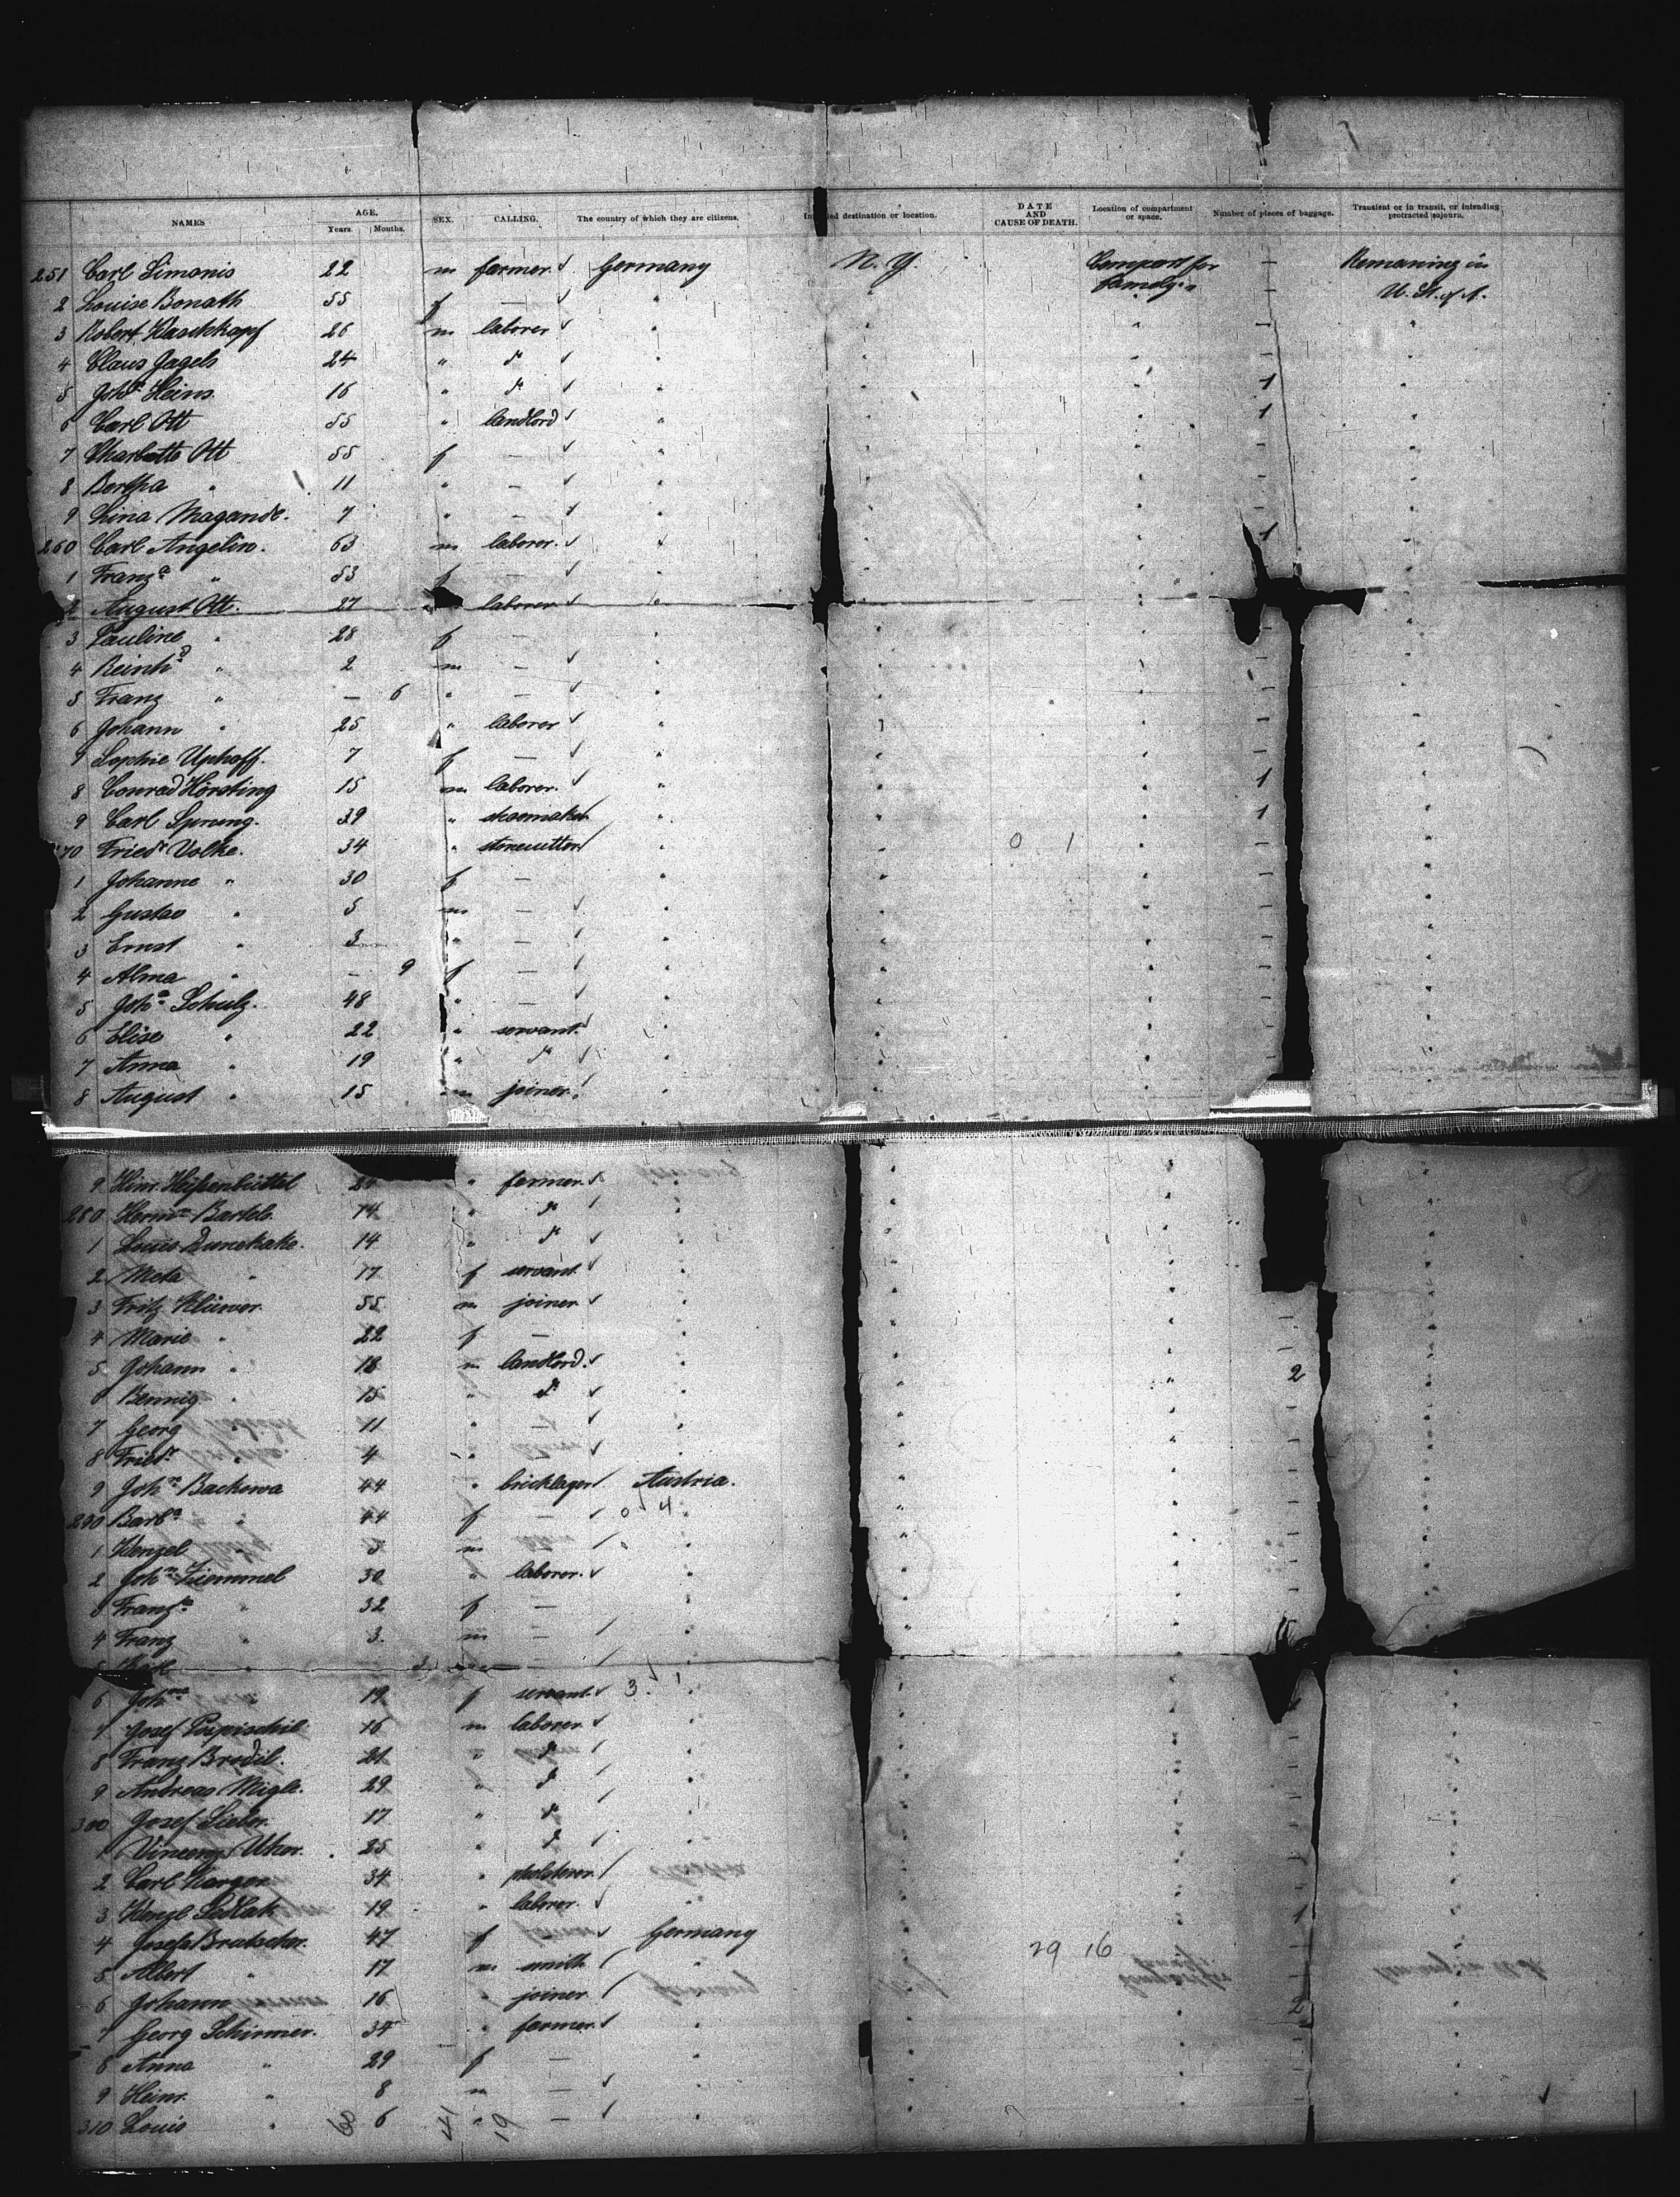 NAMES AGE. Years. Months. SEX. CALLING. The country of which they are citizens. destination or location. DATE AND CAUSE OF DEATH. Location of compartment or space. Number of pieces of baggage. Transient or in transit, or intending protracted sojourn.
251 Carl Simonis 22 m farmer Germany N. Y. Compart for — Remaning in
2 Louise Bonath 55 f — " " — U. St. of A.
3 Robert Raschkopf 26 m laborer " " — "
4 Claus Jagels 24 " do " " — "
5 Joh. Heins 16 " do " " 1 "
6 Carl Ott 55 " landlord " " 1 "
7 Charlotte Ott 55 f — " " — "
8 Bertha " 11 " — " " — "
9 Lina Magande. 7 " — " " — "
260 Carl Angelin. 63 m laborer. " " 1 "
1 Franza " 53 f — " "
2 August Ott. 27 laborer "
3 Pauline " 28 f — " " " — "
4 Reinhd " 2 m — " " " — "
5 Franz " — 6 " — " " " — "
6 Johann " 25 " laborer " " — "
7 Sophie Uphoff. 7 f — " " " — "
8 Conrad Hörsting 15 m laborer. " " " 1 "
9 Carl Sprung. 39 " shoemaker " " " 1 "
70 Friedr Volke. 34 " stonecutter " " 0 1 " — "
1 Johanne " 30 f — " " " — "
2 Gustav " 5 m — " " " — "
3 Ernst " 3 " — " " " — "
4 Alma " — 9 f — " " " — "
5 Joha Schulz. 48 " — " " " — "
6 Elise " 22 " servant " " " — "
7 Anna " 19 " do " " " "
8 August " 15 m joiner. " " "
9 Hinr. Heißenbüttel " farmer " " " "
280 Hermn Bartels. 14 " do " " " "
1 Louis Dunekake. 14 " do " " " "
2 Meta " 17 f servant " " " "
3 Fritz Klüwer. 55 m joiner " " " — "
4 Marie " 22 f — " " " — "
5 Johann " 18 m landlord. " " " 2 "
6 Bennig " 15 " do " " " — "
7 Georg 11 " — " " " — "
8 Friedr " 4 " " " " — "
9 Johnn Bachowa 44 " bricklayer Austria. " " — "
290 Barba " 44 f — 0 4 " " — "
1 Wenzel 5 m " " " — "
2 Johnn Ziemmel 30 " laborer. " " " — "
3 Franzka " 32 f — " " — "
4 Franz " 3. m — " "
6 Johnna 19 f servant 3 1 " " "
7 Josef Pospischil 16 m laborer " " " — "
8 Franz Bredil. 21 " do " " " — "
9 Andreas Migle. 29 " do " " " — "
300 Josef Sieber. 17 " do " " " — "
1 Vincenz Uher. 25 " do " " " — "
2 Carl Karger 34 " pholsterer " " " — "
3 Wenzl Sedlak 19 " laborer. " " " 1 "
4 Josefa Bratscher. 47 f Germany " 29 16 — "
5 Albert " 17 m smith " " — "
6 Johann 16 " joiner " " 2 "
7 Georg Schirmer. 34 " farmer " " " — "
8 Anna " 29 f — " " " — "
9 Heinr. " 8 m — " " " — "
310 Louis " 6 " — " " " — "